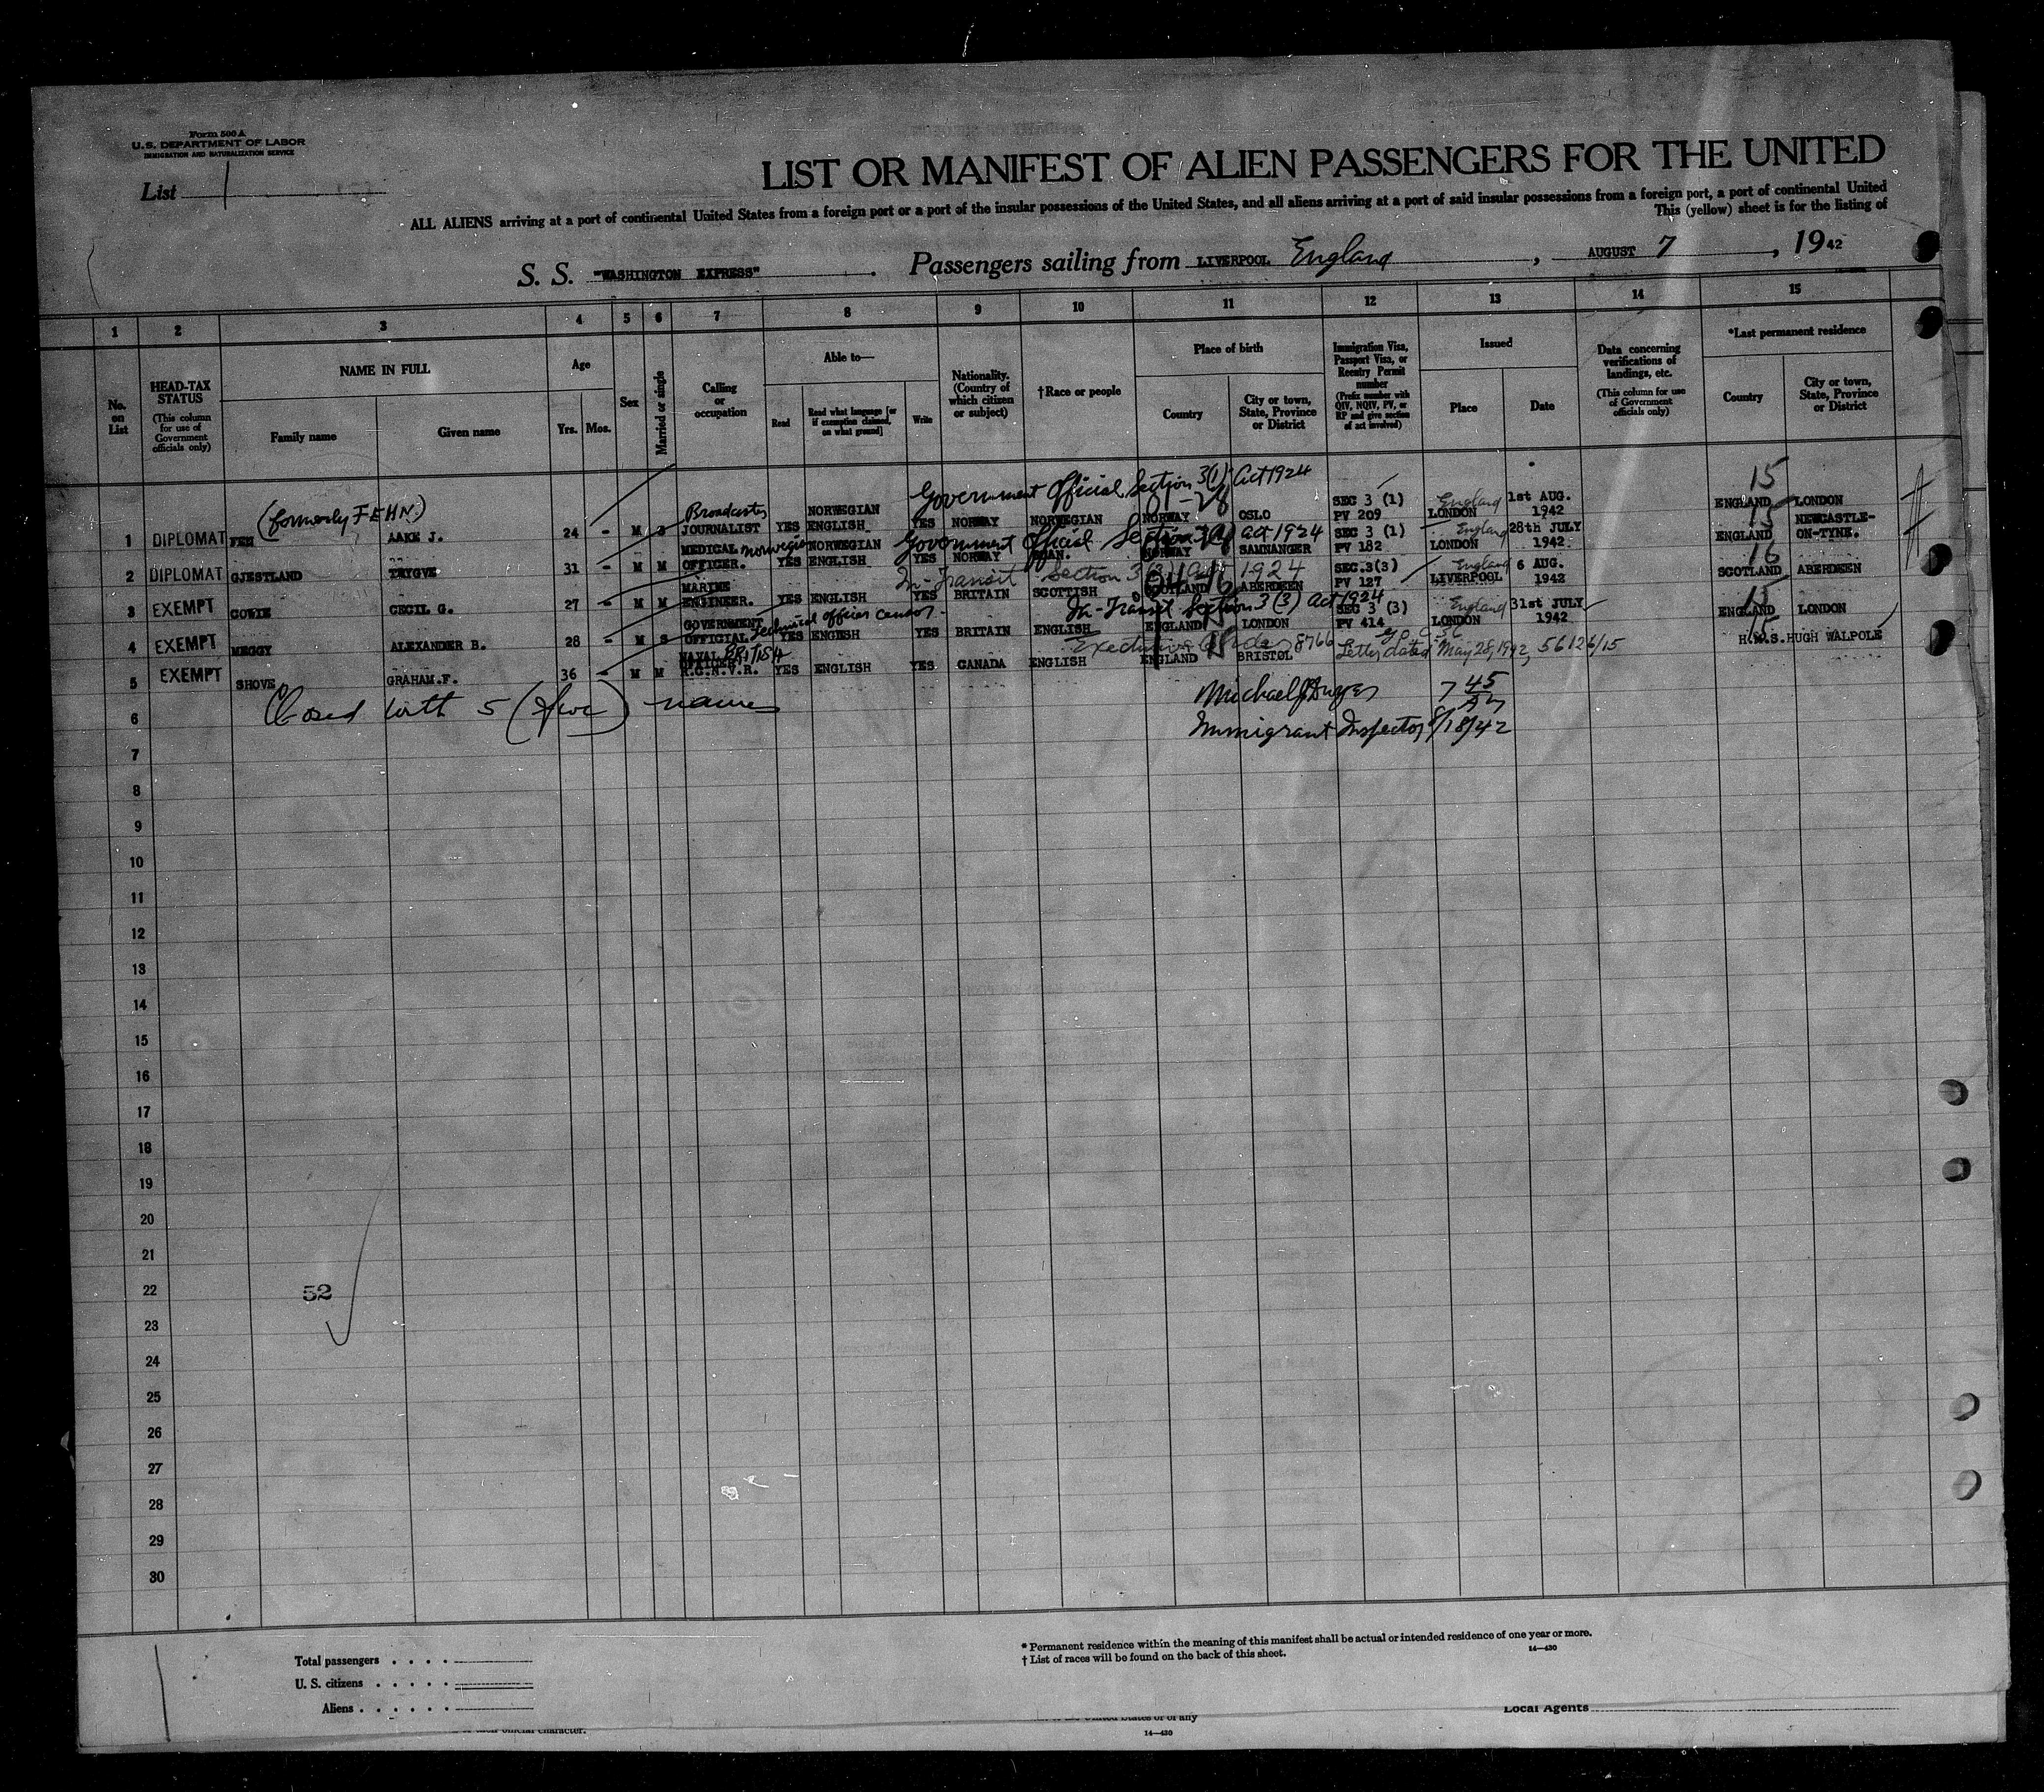 Form 500 A
U.S. DEPARTMENT OF LABOR
IMMIGRATION AND NATURALIZATION SERVICE
List 1
LIST OR MANIFEST OF ALIEN PASSENGERS FOR THE UNITED
ALL ALIENS arriving at a port of continental United States from a foreign port or a port of the insular possessions of the United States, and all aliens arriving at a port of said insular possessions from a foreign port, a port of continental United
This (yellow) sheet is for the listing of
S. S. "WASHINGTON EXPRESS". Passengers sailing from LIVERPOOL England, AUGUST 7, 1942
1 2 3 4 5 6 7 8 9 10 11 12 13 14 15
No. on List
HEAD-TAX STATUS (This column for use of Government officials only)
NAME IN FULL
Family name
Given name
Age
Yrs. Mos.
Sex
Married or single
Calling or occupation
Able to—
Read
Read what language [or if exemption claimed, on what ground]
Write
Nationality. (Country of which citizen or subject)
†Race or people
Place of birth
Country
City or town, State, Province or District
Immigration Visa, Passport Visa, or Reentry Permit number (Prefix number with QIV, NQIV, PV, or RP and give section of act involved)
Issued
Place
Date
Data concerning verifications of landings, etc. (This column for use of Government officials only)
*Last permanent residence
Country
City or town, State, Province or District
Government Official Section 3(1) Act 1924
15
(formerly FEHN)
Broadcaster
1 DIPLOMAT FEH AAKE J. 24 - M S JOURNALIST YES NORWEGIAN ENGLISH YES NORWAY NORWEGIAN NORWAY OSLO SEC 3 (1) PV 209 England LONDON 1st AUG. 1942 ENGLAND LONDON
Government Official Section 3(1) Act 1924
15
2 DIPLOMAT GJESTLAND TRYGVE 31 - M M MEDICAL OFFICER. Norwegian YES NORWEGIAN ENGLISH YES NORWAY NORWAY SAMNANGER SEC 3 (1) PV 182 England LONDON 28th JULY 1942 ENGLAND NEWCASTLE-ON-TYNE.
In-Transit Section 3(3) Act 1924
16
3 EXEMPT COWIE CECIL G. 27 - M M MARINE ENGINEER. YES ENGLISH YES BRITAIN SCOTTISH SCOTLAND ABERDEEN SEC.3(3) PV 127 England LIVERPOOL 6 AUG. 1942 SCOTLAND ABERDEEN
In-Transit Section 3(3) Act 1924
15
4 EXEMPT MEGGY ALEXANDER B. 28 - M S GOVERNMENT OFFICIAL Technical officer censor. YES ENGLISH YES BRITAIN ENGLISH ENGLAND LONDON SEC 3 (3) PV 414 England LONDON 31st JULY 1942 ENGLAND LONDON
Executive Order 8766 Letter dated May 28, 1942, 56126/15
15
5 EXEMPT SHOVE GRAHAM.F. 36 - M M NAVAL OFFICER BRITISH R.C.N.V.R. YES ENGLISH YES CANADA ENGLISH ENGLAND BRISTOL H.M.S. HUGH WALPOLE
6 Closed with 5 (five) names
Immigrant Inspector 8/18/42
7
8
9
10
11
12
13
14
15
16
17
18
19
20
21
22
52
23
24
25
26
27
28
29
30
* Permanent residence within the meaning of this manifest shall be actual or intended residence of one year or more.
† List of races will be found on the back of this sheet.
14—430
Total passengers . . . .
U. S. citizens . . . . .
Aliens . . . . . .
Local Agents
14—430